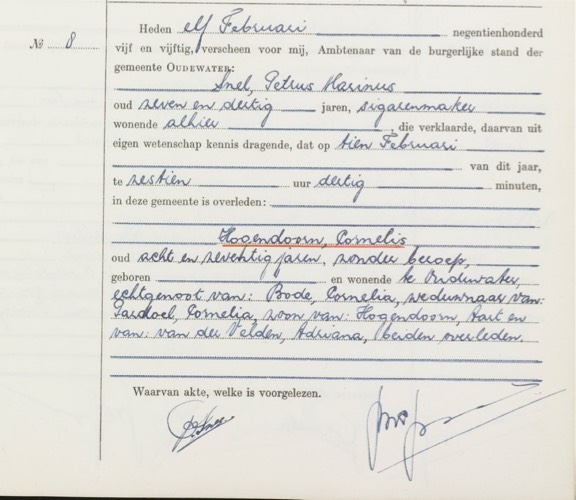 Heden elf Februari negentienhonderd
№ 8 vijf en vijftig, verscheen voor mij, Ambtenaar van de burgerlijke stand der
gemeente OUDEWATER:
Snel, Petrus Marinus
oud zeven en dertig jaren, sigarenmaker
wonende alhier, die verklaarde, daarvan uit
eigen wetenschap kennis dragende, dat op tien Februari
van dit jaar,
te zestien uur dertig minuten,
in deze gemeente is overleden:
Hogendoorn, Cornelis
oud acht en zeventig jaren, zonder beroep,
geboren en wonende te Oudewater,
echtgenoot van: Bode, Cornelia, weduwnaar van:
Pardoel, Cornelia, zoon van: Hogendoorn, Aart en
van: van der Velden, Adriana, beiden overleden.
Waarvan akte, welke is voorgelezen.